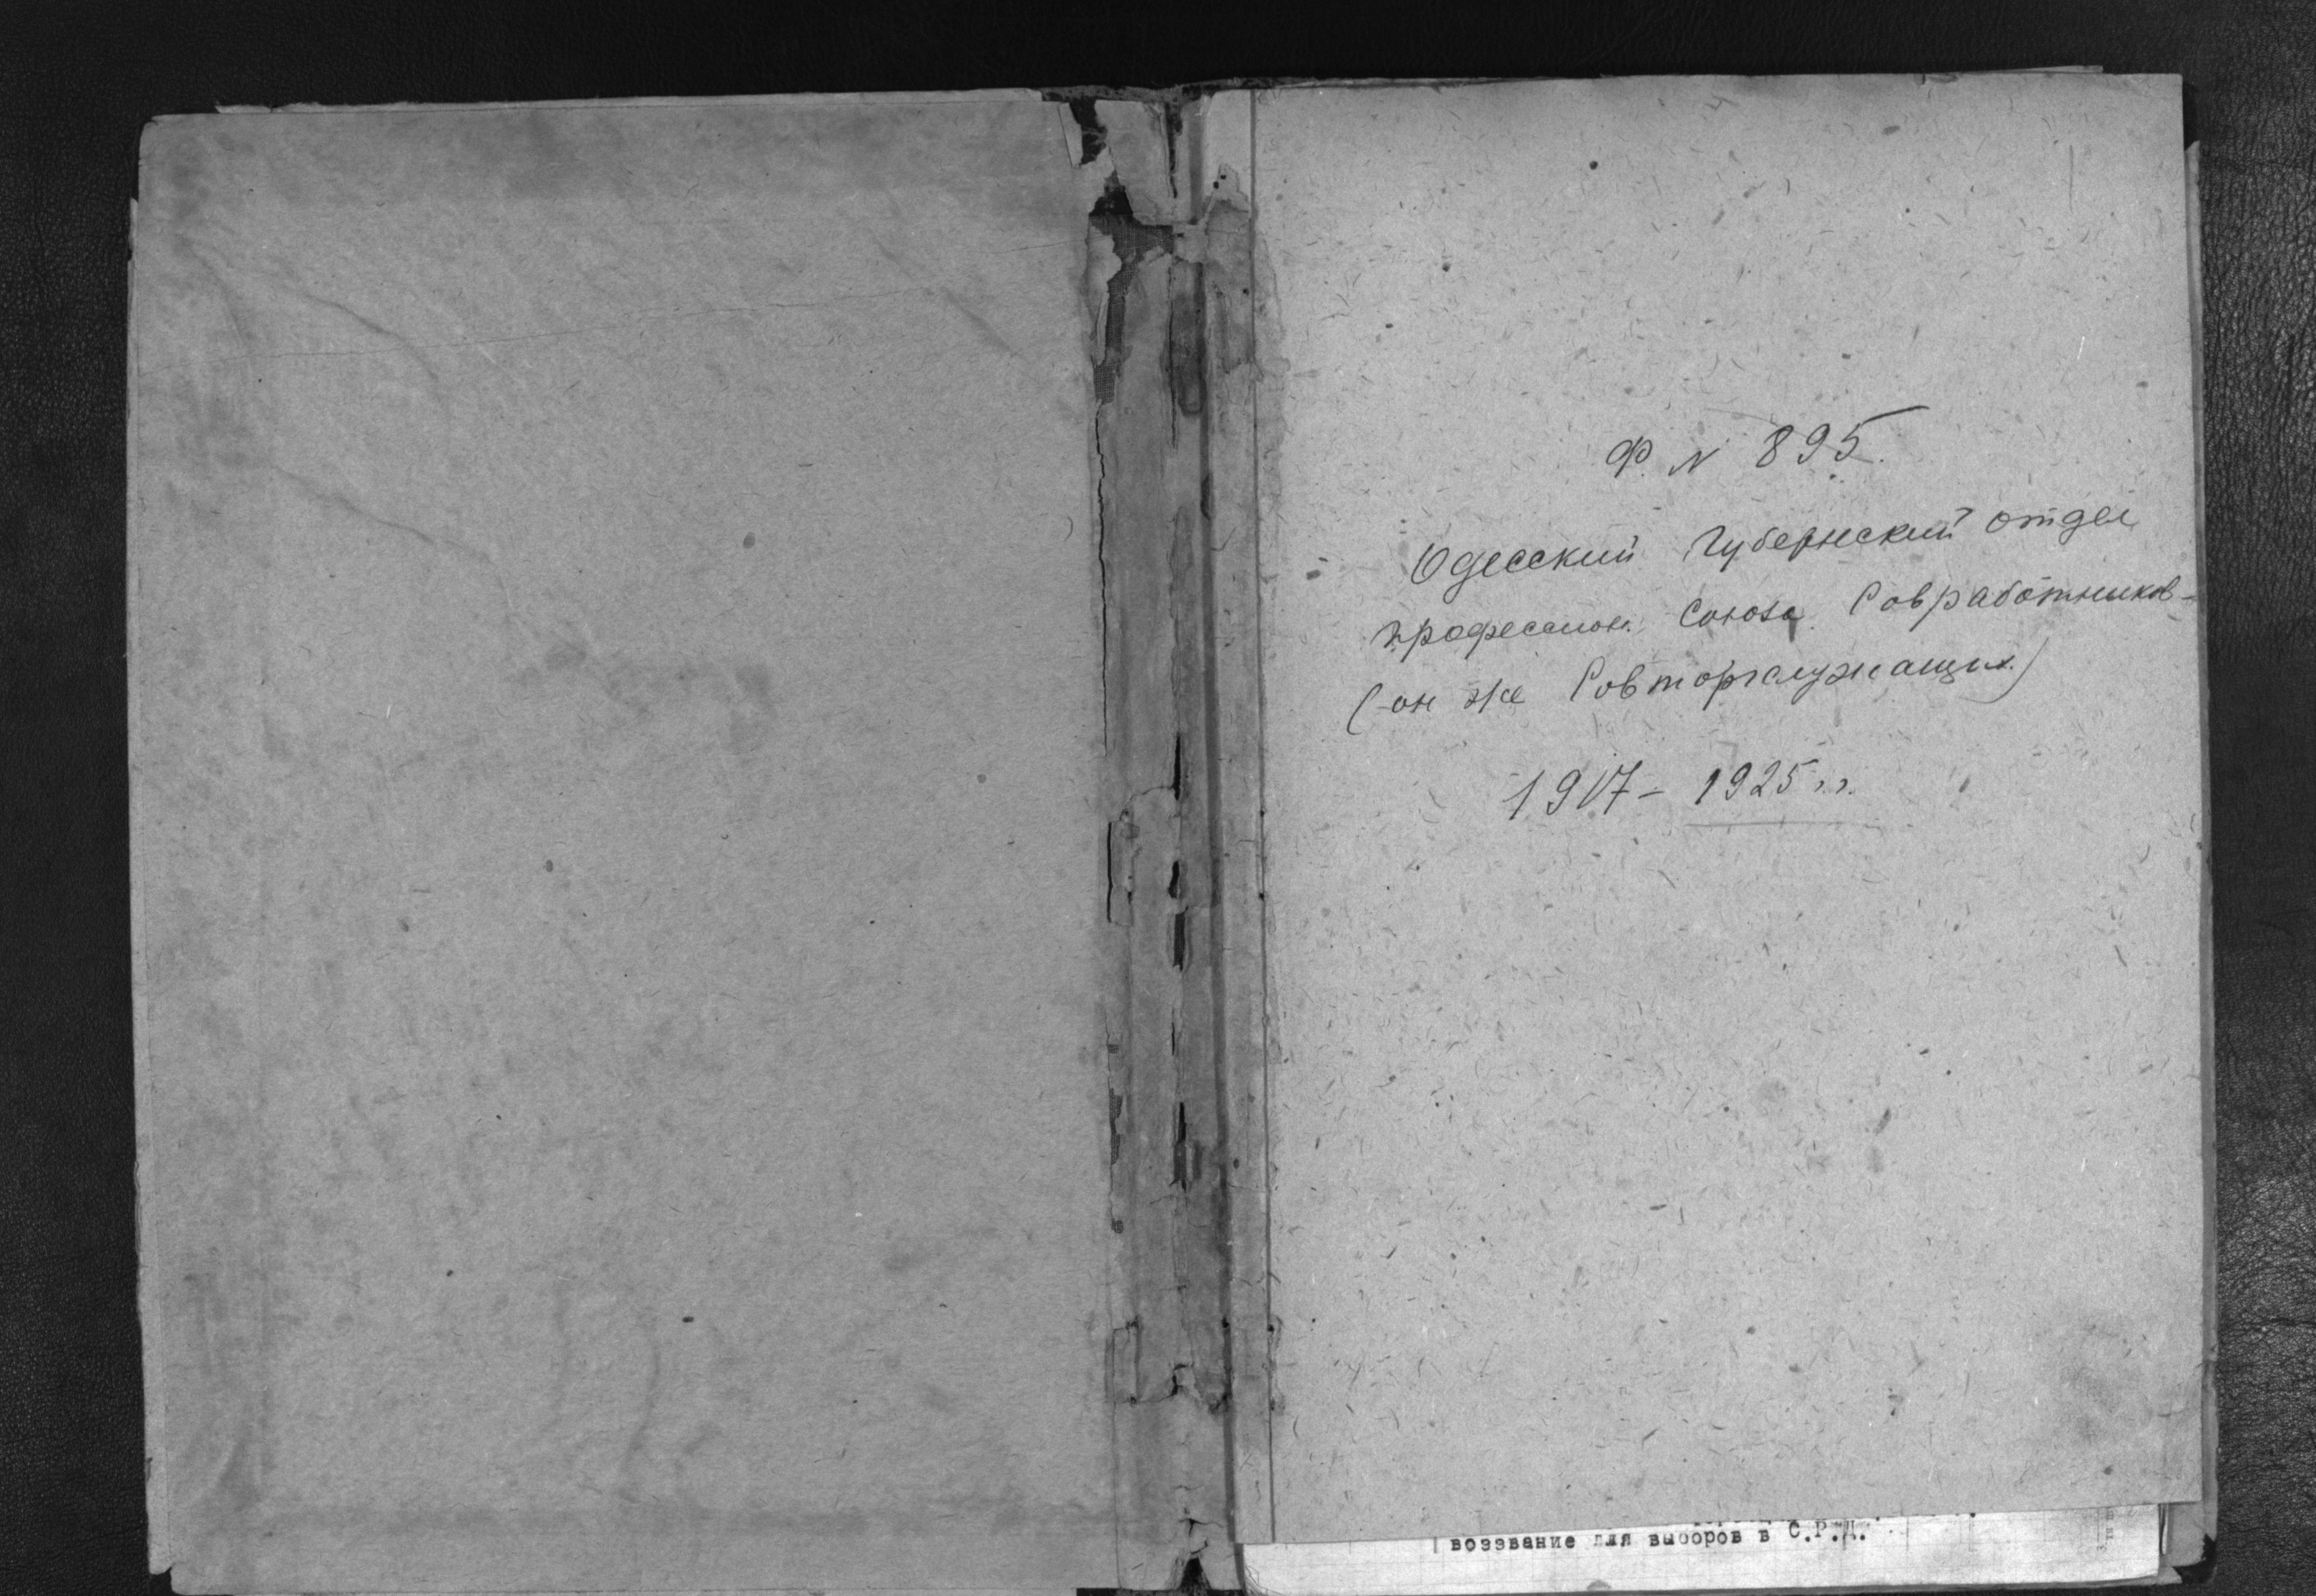 Ф. N 895.
Одесский Губернский отдел
професссион. Союза Совработников-
(он же Совторгслужащих)
1917- 1925 г.г.
воззвание для выборов в С.Р.Д.